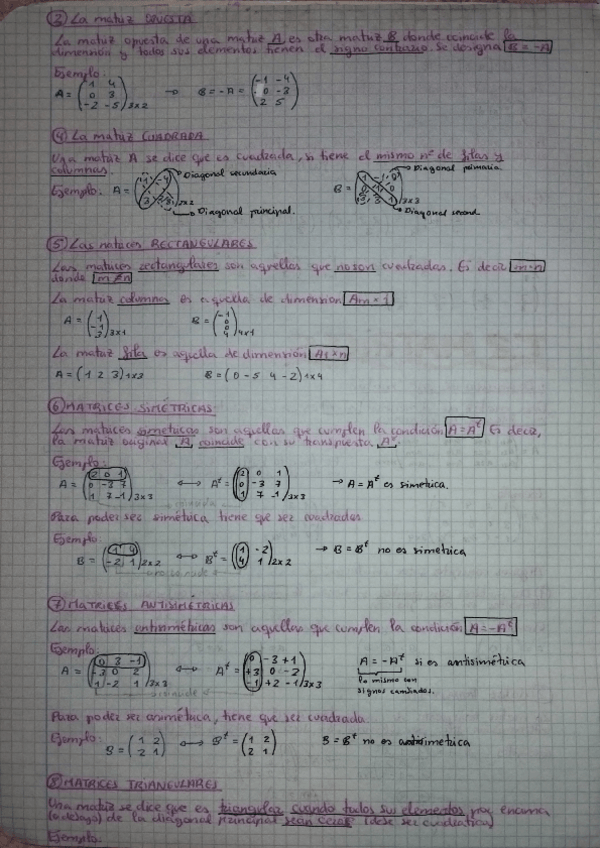 ③ La matriz OPUESTA
La matriz opuesta de una matriz A es otra matriz B donde coincide la
dimensión y todos sus elementos tienen el signo contrario. Se designa B = -A
Ejemplo:
A = (1 4
0 3
-2 -5)3x2 → B = -A = (-1 -4
0 -3
2 5)
④ La matriz CUADRADA
Una matriz A se dice que es cuadrada, si tiene el mismo nº de filas y
columnas.
Ejemplo: A = 2x2 Diagonal secundaria
Diagonal principal.
B = 3x3 Diagonal primaria
Diagonal second.
⑤ Las matrices RECTANGULARES
Las matrices rectangulares son aquellas que no son cuadradas. Es decir m·n
donde m≠n
La matriz columna es aquella de dimensión Am×1
A = (1
-1
3)3x1 B = (-1
0
0
4)4x1
La matriz fila es aquella de dimensión A1×n
A = (1 2 3)1x3 B = (0 -5 4 -2)1x4
⑥ MATRICES SIMÉTRICAS
Las matrices simétricas son aquellas que cumplen la condición A = Aᵗ Es decir,
la matriz original A, coincide con su transpuesta Aᵗ.
Ejemplo:
A = (2 0 1
0 -3 7
1 7 -1)3x3 ↔ Aᵗ = (2 0 1
0 -3 7
1 7 -1)3x3 → A = Aᵗ es simétrica.
Para poder ser simétrica tiene que ser cuadrada
Ejemplo
B = (1 4
-2 1)2x2 ↔ Bᵗ = (1 -2
4 1)2x2 → B = Bᵗ no es simétrica
⑦ MATRICES ANTISIMÉTRICAS
Las matrices antisimétricas son aquellas que cumplen la condición A = -Aᵗ
Ejemplo:
A = (0 3 -1
-3 0 2
1 -2 1)3x3 ↔ Aᵗ = (0 -3 +1
+3 0 -2
-1 +2 -1)3x3 A = -Aᵗ si es antisimétrica
lo mismo con
signos cambiados.
Para poder ser asimétrica, tiene que ser cuadrada
Ejemplo:
B = (1 2
2 1) ↔ Bᵗ = (1 2
2 1) B = Bᵗ no es antisimétrica
⑧ MATRICES TRIANGULARES
Una matriz se dice que es triangular cuando todos sus elementos por encima
(o debajo) de la diagonal principal sean ceros (debe ser cuadrática)
Ejemplo.